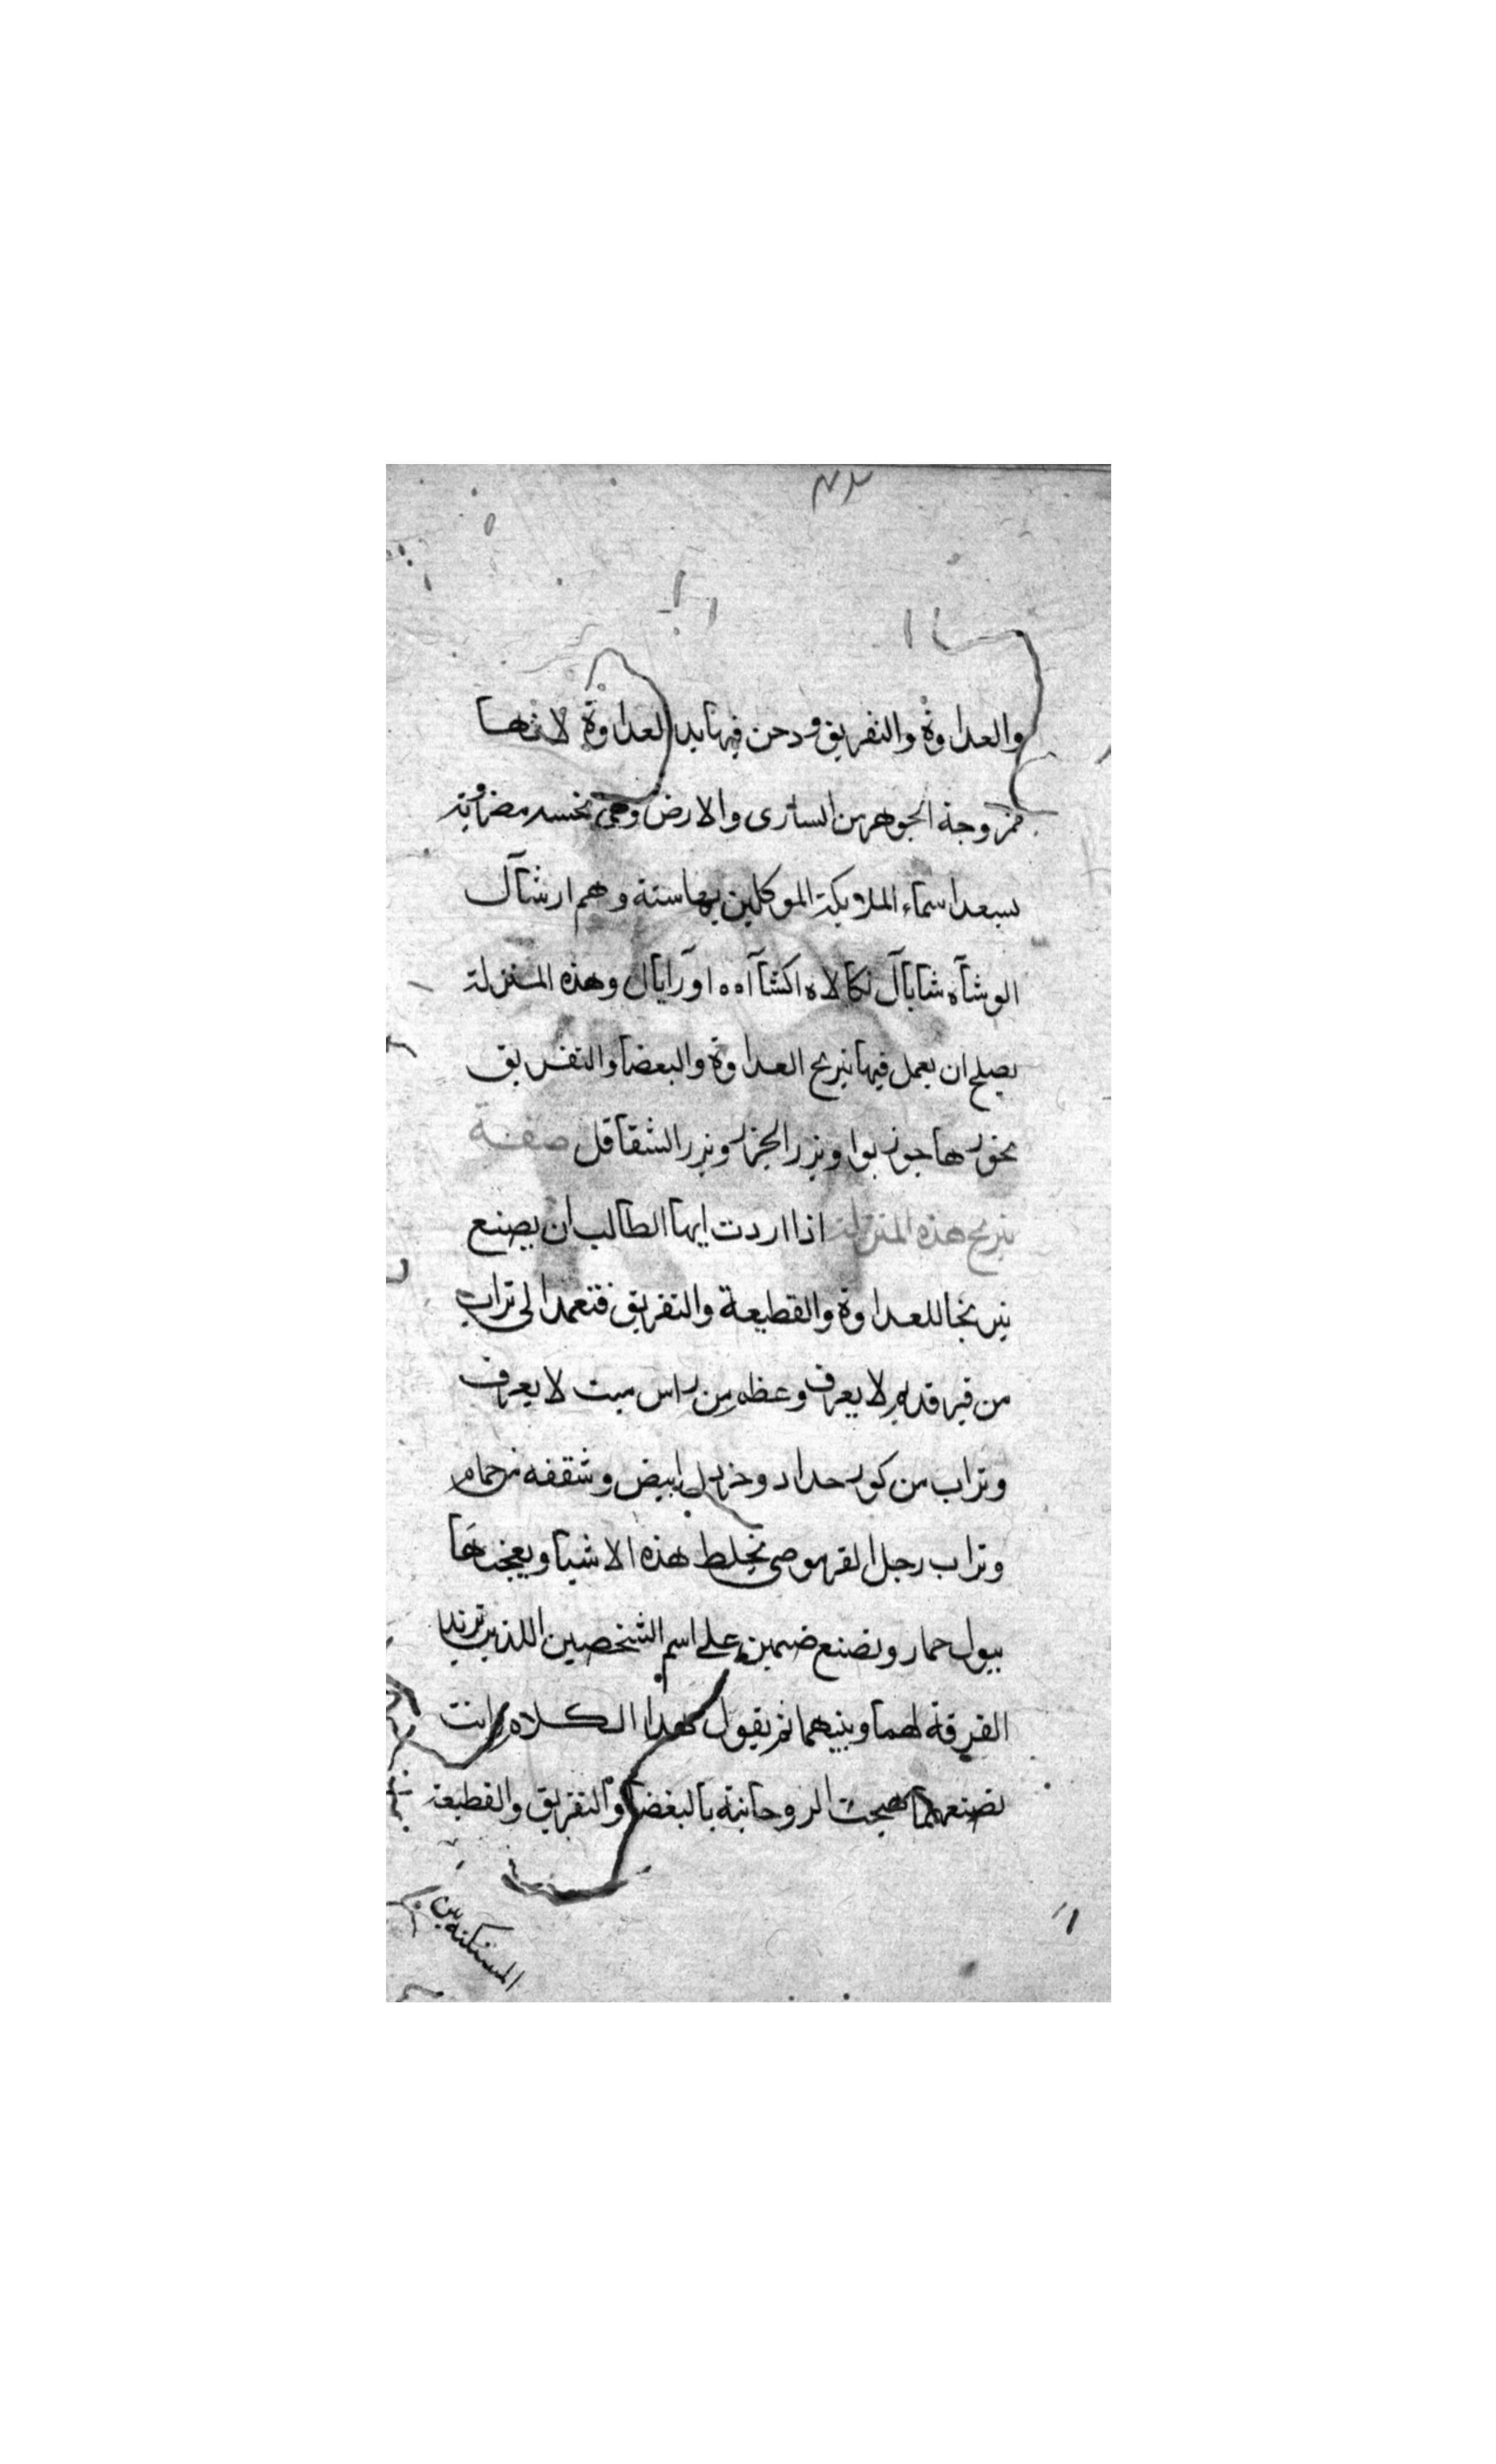 والعداوة والتفريق ودخن فيها بد العداوة لانها
ممزوجة الجوهر من السارى والارض وهى نحسه مضروبة
بسعد اسماء الملايكة الموكلين بها ستة وهم ارشآل
الوشآه شاباآل اكشآاه اورايال وهذه المنزلة
يصلح ان يعمل فيها نيرنج العداوة والبغضا والتفريق
بخورها جوز بوا وبزر الجزر وبزر الشقاقل صفة
نيرنج هذه المنزلة اذا اردت ايها الطالب ان يصنع
نيرنجا للعداوة والقطيعة والتفريق فتعمد الى تراب
من قبر لا يعرف وعظم من راس ميت لا يعرف
وتراب من كور حداد وخردل ابيض وشقفه من حمام
وتراب رجل تخلط هذه الاشيا ويعجنها
ببول حمار وتصنع على اسم الشخصين اللذين تريد
الفرقة لهما وبينهما ثم يقول هذا الكلام وانت
تصنعهما هيجت الروحانية بالبغضا والتفريق والقطيعة